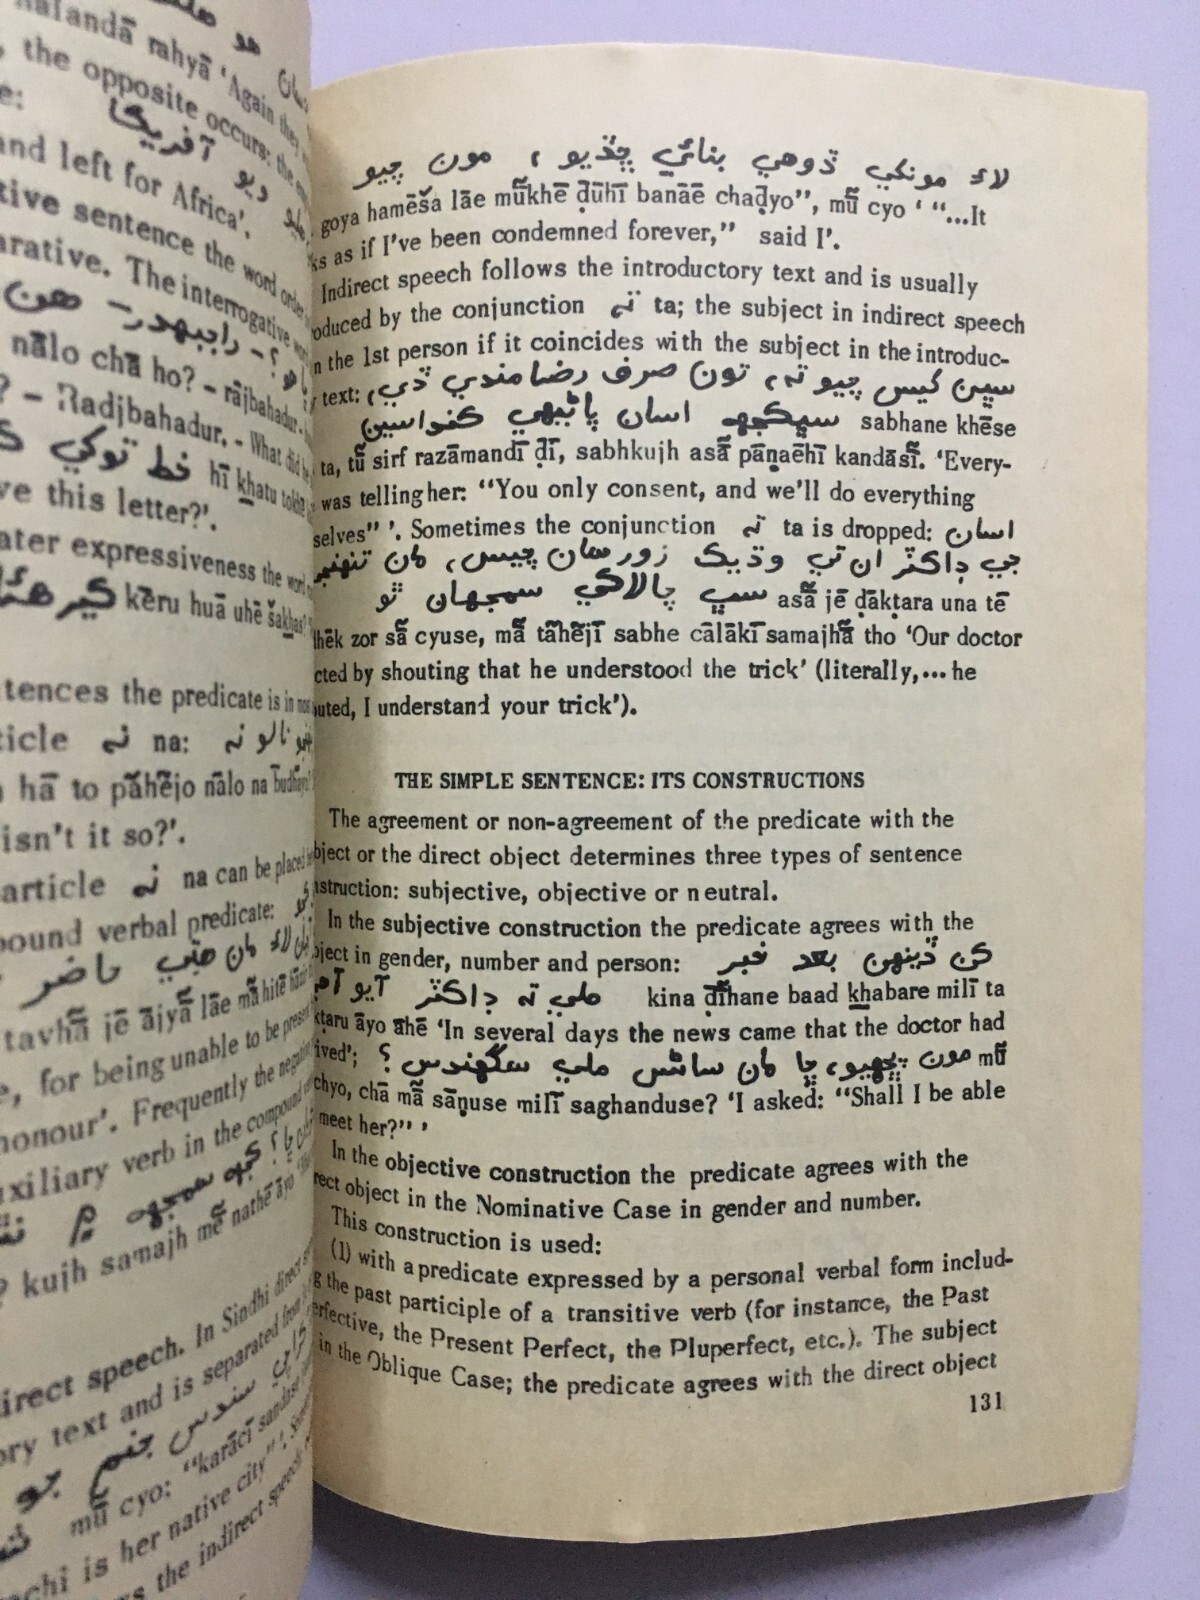 nafandā rahyā ‘Again they
, the opposite occurs: the
e: آفريڪا
and left for Africa’.
tive sentence the word order
arative. The interrogative word
nālo chā ho? – rājbahadur. –
? – Radjbahadur. – What did he
خط توکي hī khatu tokhe
ve this letter?’.
ater expressiveness the word
ڪير هئا kēru huā uhē šakhas?
ntences the predicate is in most
ticle نه na: نالو نه
hā to pā̃hējo nālo na budhāyo
isn't it so?’.
article نه na can be placed
pound verbal predicate:
لاءِ مان هتي حاضر
tavhā̃ jē ājyā̃ lāe mā̃ hitē hāzi
e, for being unable to be present
honour’. Frequently the negative
uxiliary verb in the compound
چا؟ ڪجهه سمجهه ۾
? kujh samajh mē̃ nathē āyo
direct speech. In Sindhi direct
ory text and is separated from
سندس جنم جو
mū̃ cyo: “karācī sandase
achi is her native city” ’.
the indirect speech
لاءِ مونکي ڏوهي بنائي ڇڏيو، مون چيو
goya hamēša lāe mū̃khē ḍūhī banāē chaḍyo”, mū̃ cyo ‘ “...It
ks as if I've been condemned forever,” said I’.
Indirect speech follows the introductory text and is usually
oduced by the conjunction ته ta; the subject in indirect speech
n the 1st person if it coincides with the subject in the introduc-
text: سڀن کيس چيو ته، تون صرف رضامندي ڏي،
سڀڪجهه اسان پاڻيهي ڪنداسين sabhane khēse
ta, tū̃ sirf razāmandī ḍī, sabhkujh asā̃ pāṇaēhī kandāsī̃. ‘Every-
was telling her: “You only consent, and we'll do everything
selves” ’. Sometimes the conjunction ته ta is dropped: اسان
جي ڊاڪٽر ان تي وڌيڪ زور سان چيس، مان تنهنجي
سڀ چالاڪي سمجهان ٿو asā̃ jē ḍākṭara una tē
hēk zor sā̃ cyuse, mā̃ tā̃hējī sabhe cālākī samajhā̃ tho ‘Our doctor
cted by shouting that he understood the trick’ (literally,... he
outed, I understand your trick’).
THE SIMPLE SENTENCE: ITS CONSTRUCTIONS
The agreement or non-agreement of the predicate with the
bject or the direct object determines three types of sentence
nstruction: subjective, objective or neutral.
In the subjective construction the predicate agrees with the
bject in gender, number and person: ڪن ڏينهن بعد خبر
ملي ته ڊاڪٽر آيو آهي kina ḍī̃hane baad khabare milī ta
kṭaru āyo āhē ‘In several days the news came that the doctor had
ived’; مون پڇيو، ڇا مان ساڻس ملي سگهندس؟ mū̃
chyo, chā mā̃ sāṇuse milī saghanduse? ‘I asked: “Shall I be able
meet her?” ’
In the objective construction the predicate agrees with the
rect object in the Nominative Case in gender and number.
This construction is used:
(1) with a predicate expressed by a personal verbal form includ-
g the past participle of a transitive verb (for instance, the Past
erfective, the Present Perfect, the Pluperfect, etc.). The subject
in the Oblique Case; the predicate agrees with the direct object
131